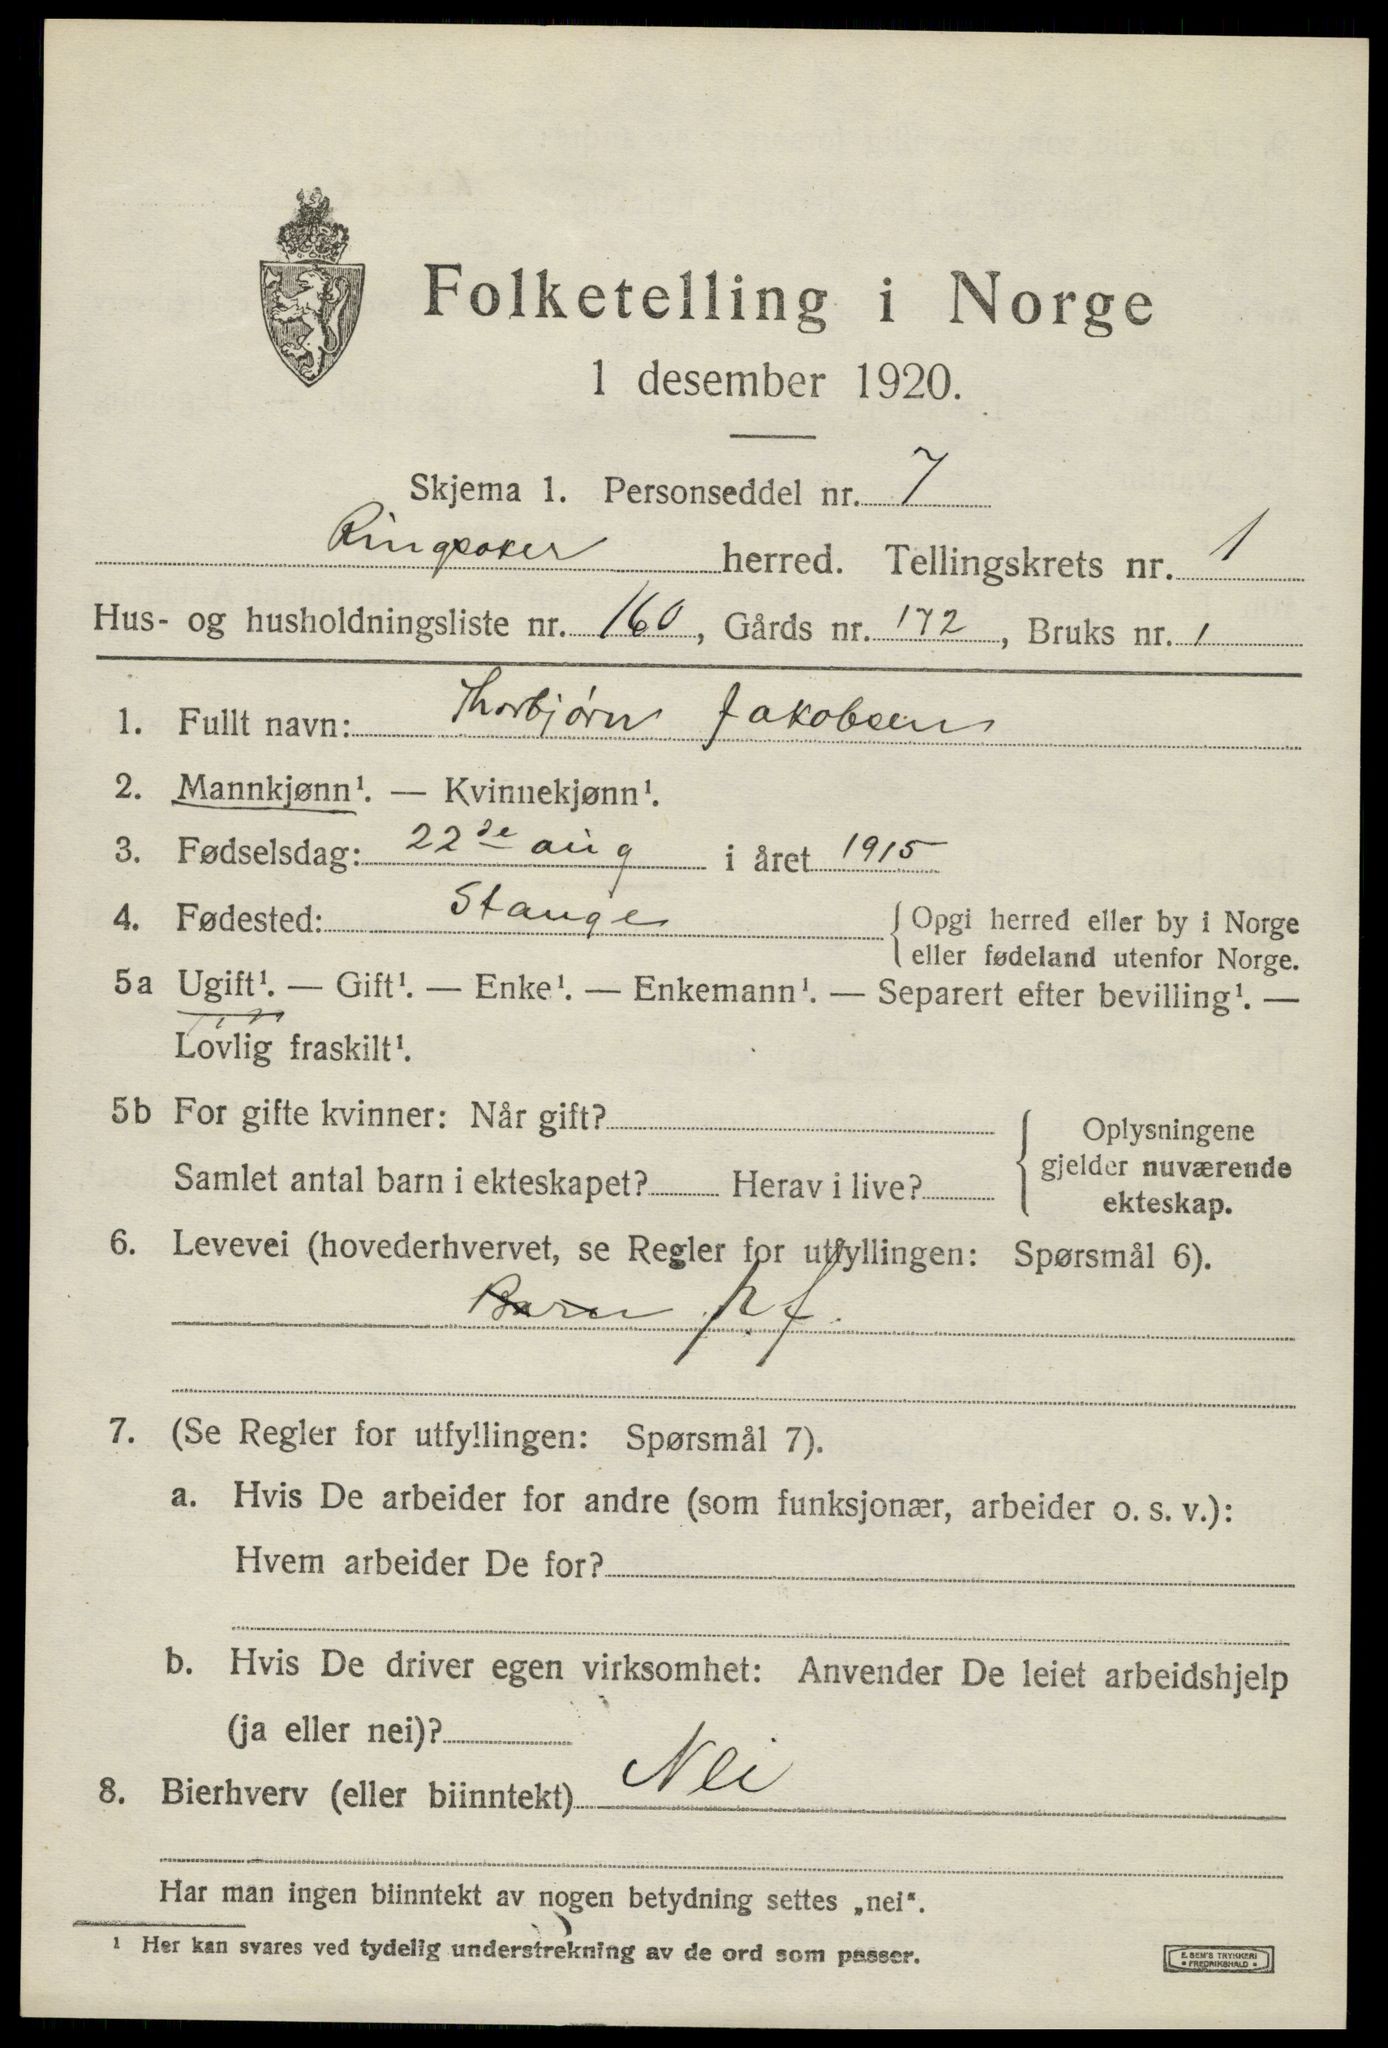 Folketelling i Norge
1 desember 1920.
Skjema 1. Personseddel nr. 7
Ringsaker herred. Tellingskrets nr. 1
Hus- og husholdningsliste nr. 160, Gårds nr. 172, Bruks nr. 1
1. Fullt navn: Thorbjørn Jakobsen
2. Mannkjønn¹. — Kvinnekjønn¹.
3. Fødselsdag: 22de aug i året 1915
4. Fødested: Stange { Opgi herred eller by i Norge
eller fødeland utenfor Norge.
5a Ugift¹. — Gift¹. — Enke¹. — Enkemann¹. — Separert efter bevilling¹. —
Lovlig fraskilt¹.
5b For gifte kvinner: Når gift? { Oplysningene
gjelder nuværende
ekteskap.
Samlet antal barn i ekteskapet? Herav i live?
6. Levevei (hovederhvervet, se Regler for utfyllingen: Spørsmål 6).
Barn
7. (Se Regler for utfyllingen: Spørsmål 7).
a. Hvis De arbeider for andre (som funksjonær, arbeider o. s. v.):
Hvem arbeider De for?
b. Hvis De driver egen virksomhet: Anvender De leiet arbeidshjelp
(ja eller nei)?
8. Bierhverv (eller biinntekt) Nei
Har man ingen biinntekt av nogen betydning settes „nei“.
¹ Her kan svares ved tydelig understrekning av de ord som passer.
E. SEM'S TRYKKERI
• FREDRIKSHALD •